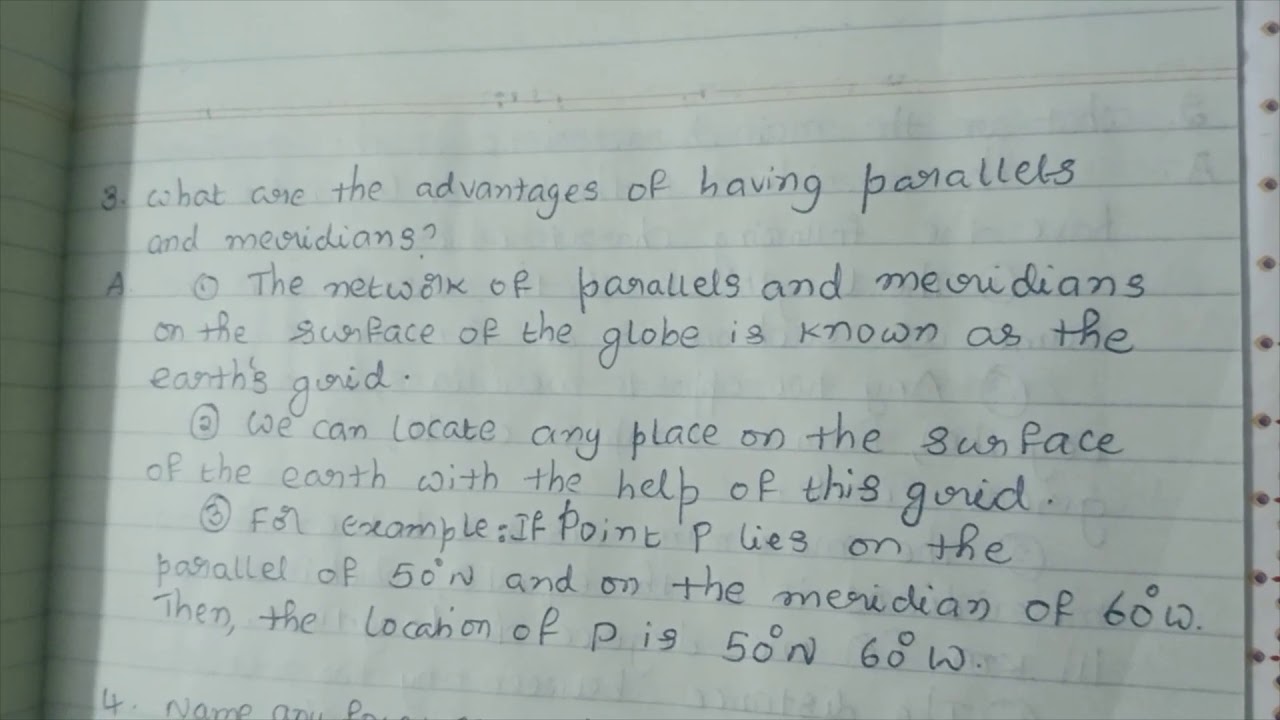 3. What are the advantages of having parallels
and meridians?
A. ① The network of parallels and meridians
on the surface of the globe is known as the
earth's grid.
② We can locate any place on the surface
of the earth with the help of this grid.
③ For example: If Point P lies on the
parallel of 50°N and on the meridian of 60°W.
Then, the location of P is 50°N 60°W.
4. Name any